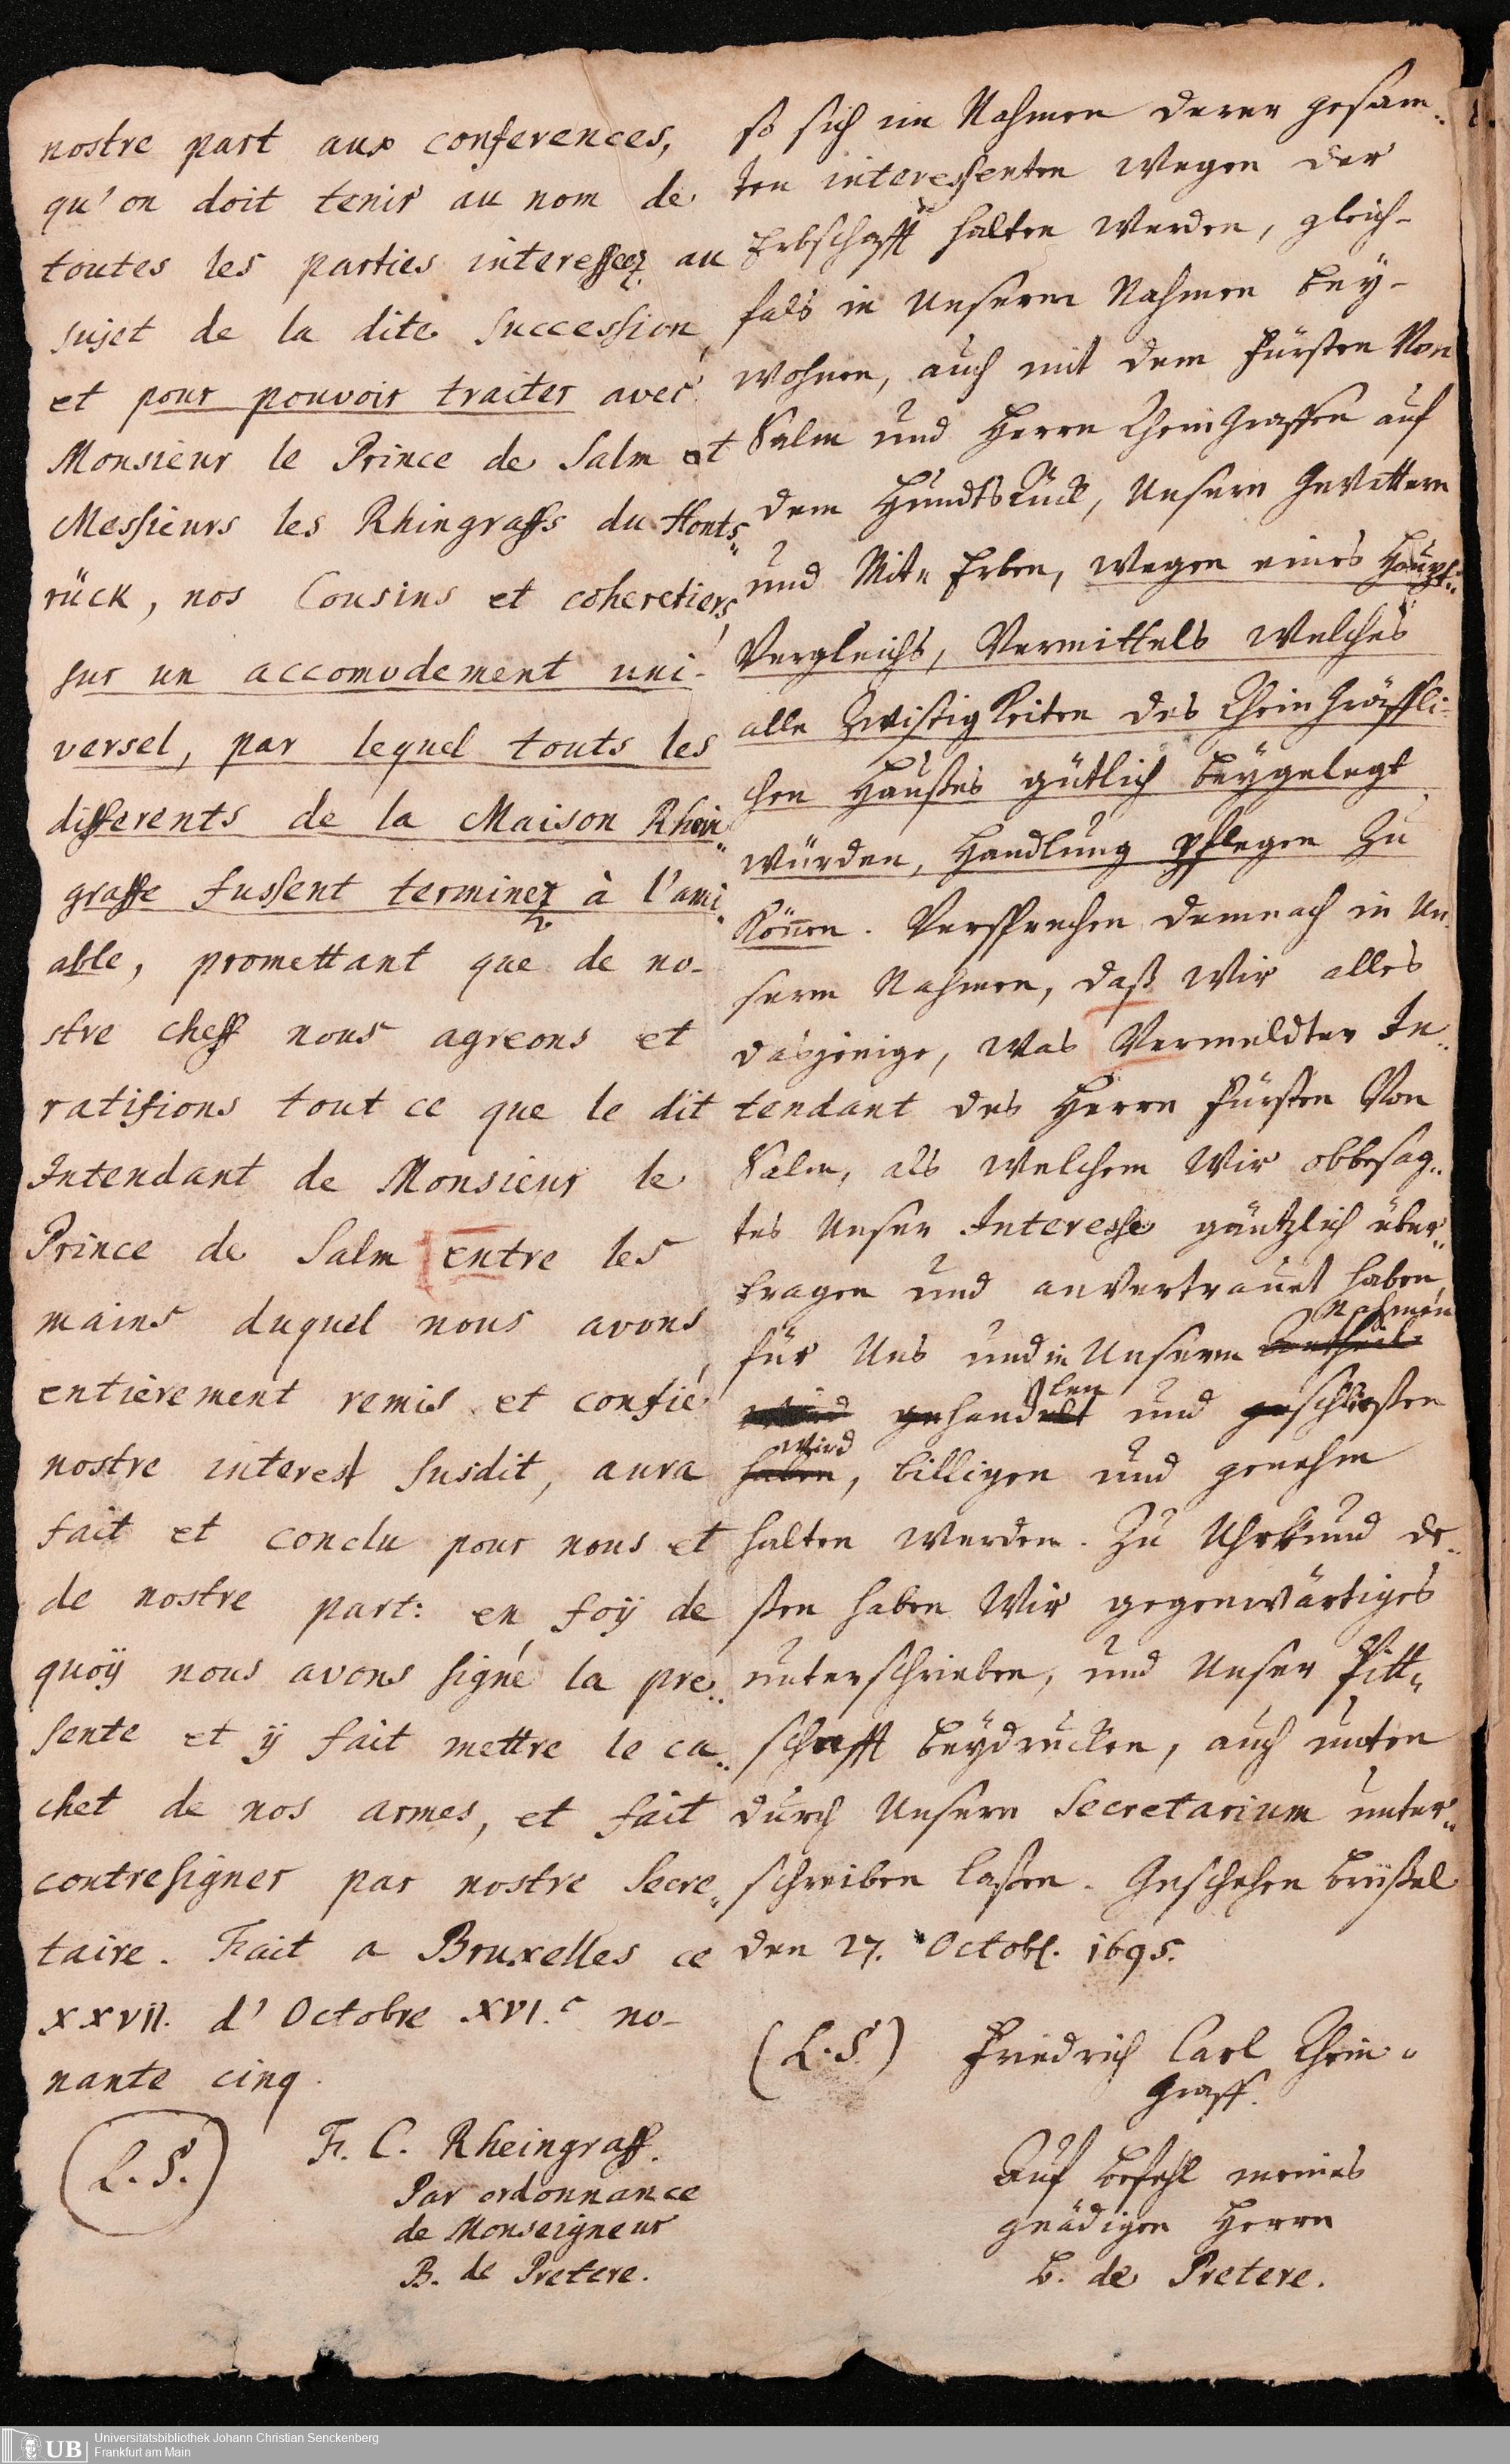 nostre part aux conferences,
qu'on doit tenir au nom de
toutes les parties interessez au
sujet de la dite succession,
et pour pouvoir traiter avec
Monsieur le Prince de Salm et
Messieurs les Rhingraffs du Honts„
rück, nos Cousins et coheretiers,
sur un accomodement uni-
versel, par lequel touts les
differents de la Maison Rhein„
graffe fussent terminez à l'ami„
able, promettant que de no-
stre cheff nous agreons et
ratifions tout ce que le dit
Intendant de Monsieur le
Prince de Salm entre les
mains duquel nous avons
entièrement remis et confié
nostre interest susdit, aura
fait et conclu pour nous et
de nostre part: en foÿ de
quoÿ nous avons signé la pre„
sente et ÿ fait mettre le ca„
chet de nos armes, et fait
contresigner par nostre Secre„
taire. Fait a Bruxelles ce
XXVII. d'Octobre XVI.c no-
nante cinq.
(L.S.) F. C. Rheingraff.
Par ordonnance
de Monseigneur
B. de Pretere.
so sich im Nahmen derer gesam„
ten interessenten wegen der
Erbschafft halten werden, gleich-
fals in Unserm Nahmen beÿ-
wohnen, auch mit dem Fürsten Von
Salm und Herrn Rheingraffen auf
dem Hundtsrück, Unsern Gevettern
und Mit„ Erben, wegen eines Haupt„
Vergleichs, Vermittels welches
alle Zwistigkeiten des Rheingräffli-
chen Haußes gütlich beÿgelegt
würden, Handlung pflegen zu
können. Versprechen demnach in Un„
serm Nahmen, daß Wir alles
dasjenige, was Vermeldter In„
tendant des Herrn Fürsten Von
Salm, als welchem Wir obbesag„
tes Unser Interesse gäntzlich über„
tragen und anvertrauet haben,
Nahmen
für Uns und in Unserm Antheil
len
gehandelt und geschloßen
wird
haben, billigen und genehm
halten werden. Zu Uhrkund de„
ßen haben Wir gegenwärtiges
unterschrieben, und Unser Pitt„
schafft beÿdrucken, auch unten
durch Unsern Secretarium unter„
schreiben laßen. Geschehen Brüßel
den 27. Octobr. 1695.
(L.S.) Friedrich Carl Rhein„
Graff.
Auf Befehl meines
gnädigen Herrn
B. de Pretere.
UB Universitätsbibliothek Johann Christian Senckenberg
Frankfurt am Main